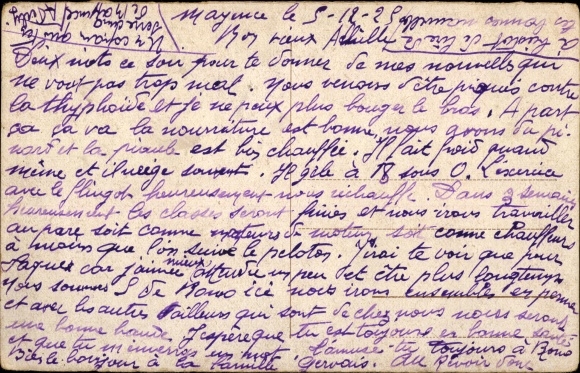 Mayence le 5-12-25
Mon vieux Achille
Deux mots ce soir pour te donner de mes nouvelles qui
ne vont pas trop mal. Nous venons d'être piqués contre
la thyphoïde et je ne peux plus bouger le bras. A part
ça ça va la nourriture est bonne, nous avons du pi-
nard et la piaule est bien chauffée. Il fait froid quand
même et il neige souvent. Il gèle à 18 sous 0. L'exercice
avec le flingot heureusement nous réchauffe. Dans 3 semaines
heureusement les classes seront finies et nous irons travailler
au parc soit comme de moteurs soit comme chauffeurs
à moins que l'on suive le peloton. J'irai te voir que pour
Paques car j'aime mieux attendre un peu et être plus longtemps
Nous sommes 5 de ici nous irons ensembles en perme
et avec les autres d'ailleurs qui sont de chez nous nous serons
une bonne bande. J'espère que tu est toujours en bonne santé
et que tu m'enverras un mot. t'amuse-tu toujours à
Bien le bonjour à la famille Gervais. Au revoir